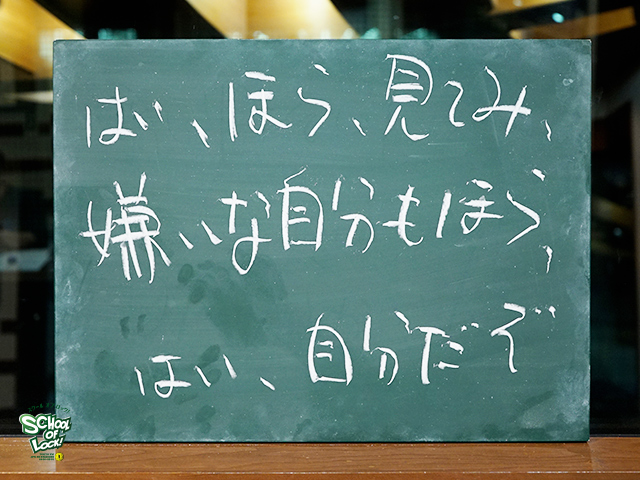 はい、ほら、見てみ、
嫌いな自分もほら、
はい、自分だぞ
SCHOOL
OF
LOCK!